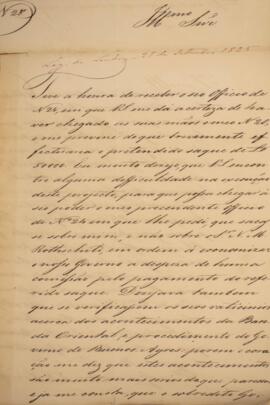 N 28
Illmo
Snr
Leg. de Londres 28 de Setembro 1825
Tive a honra de receber o seo Officio de
Nº 24, em que V. S. me dá a certeza de ha-
ver chegado as suas mãos o meo Nº 21,
e me previne de que brevemente ef-
fectuaria o pretendido saque de £
50000. Eu sinto dizer, que V. S. encon-
tre alguma difficuldade na execução
deste projecto, para que possa chegar á
seo poder o meo precedente officio
de Nº 26 em que lhe pedi, que sacas-
se sobre mim, e não sobre o Sr. N. M.
Rothschild, em ordem á economizar
o nosso Governo a despeza de huma
comissão pelo pagamento do refe-
rido saque. Desejara tambem
que se verificassem os seos vaticinios
acerca dos acontecimentos da Ban-
da Oriental, e procedimento do Go-
verno de Buenos Ayres; porem o cora-
ção me diz que estes acontecimentos
são muito mais serios do que parecem
e já me consta, que o sobredito Go-